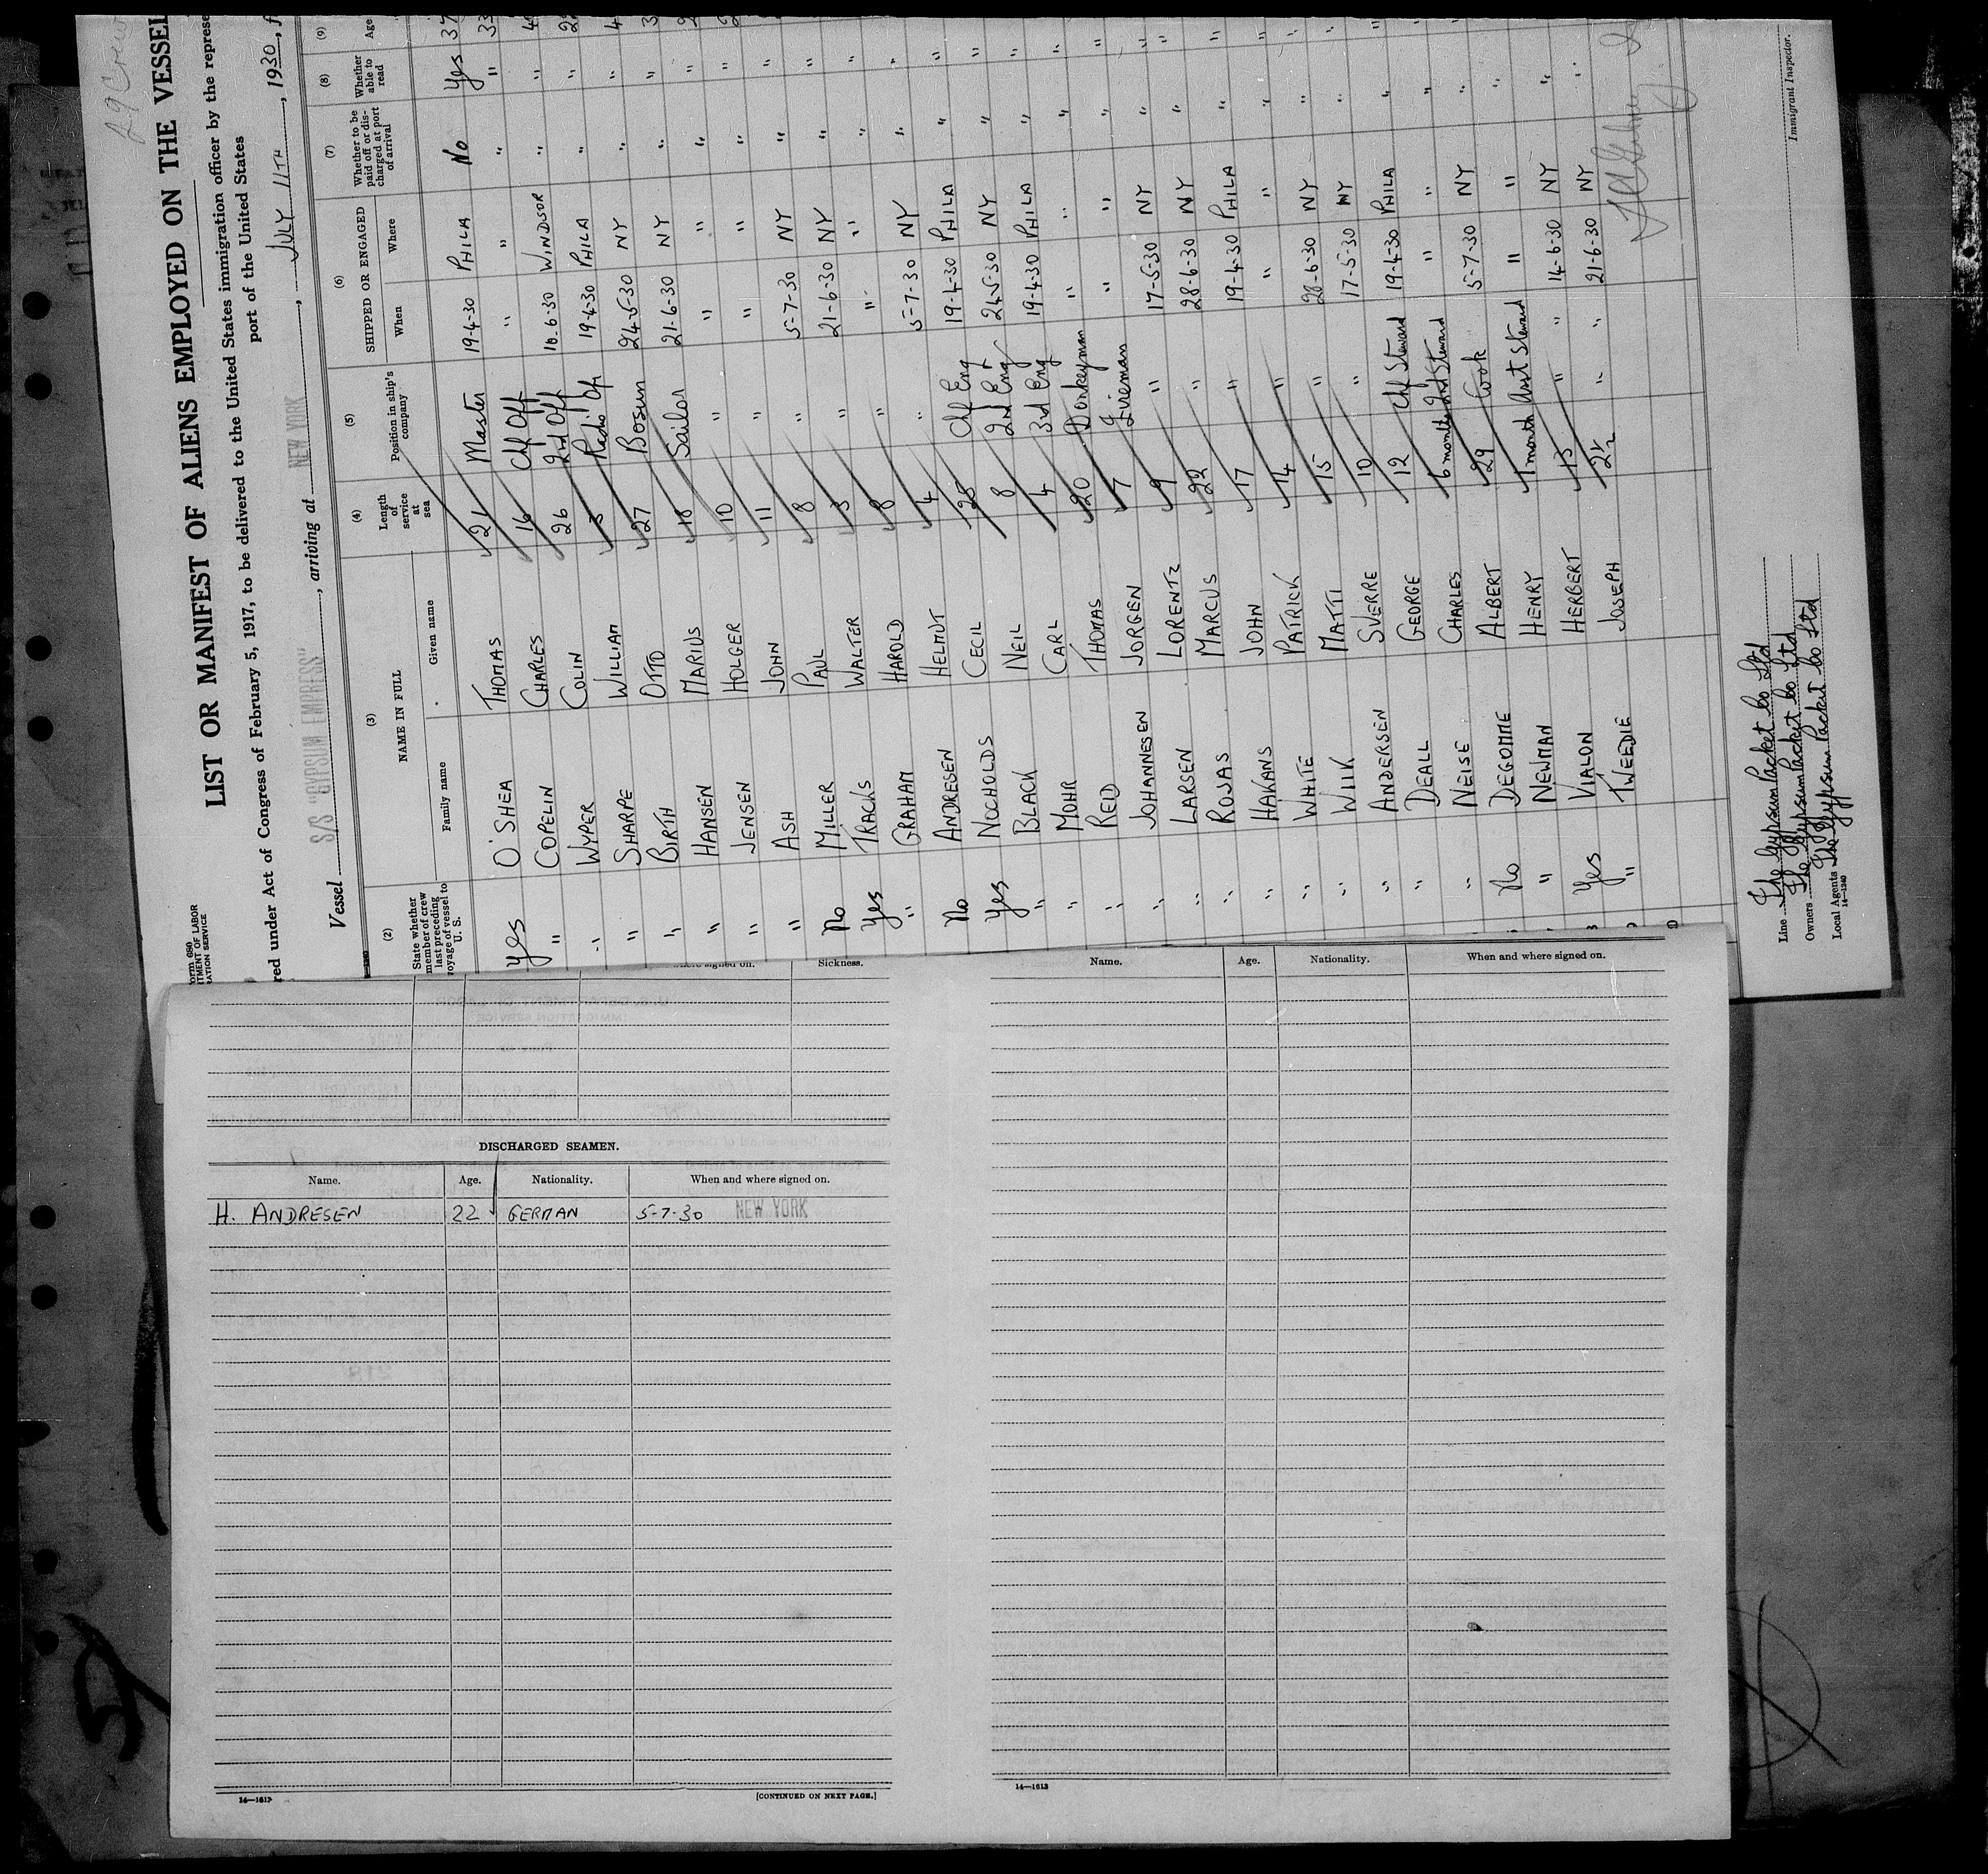 29 Crew
LIST OR MANIFEST OF ALIENS EMPLOYED ON THE VESSEL
red under Act of Congress of February 5, 1917, to be delivered to the United States immigration officer by the represe
port of the United States
Vessel S/S "GYPSUM EMPRESS", arriving at NEW YORK, JULY 11TH, 1930, f
(2) (3) (4) (5) (6) (7) (8) (9)
State whether member of crew last preceding voyage of vessel to U. S. NAME IN FULL Family name Given name Length of service at sea Position in ship's company SHIPPED OR ENGAGED When Where Whether to be paid off or discharged at port of arrival Whether able to read Age
Yes O'SHEA THOMAS 21 Master 19-4-30 PHILA No Yes 37
" COPELIN CHARLES 16 Chf Off " " " " 33
" WYPER COLIN 26 2nd Off 16-6-30 WINDSOR " "
" SHARPE WILLIAM 3 Radio Op 19-4-30 PHILA " "
" BIRTH OTTO 27 Bosun 24-5-30 NY " "
" HANSEN MARIUS 18 Sailor 21-6-30 NY " "
" JENSEN HOLGER 10 " " " " "
" ASH JOHN 11 " " " " "
No MILLER PAUL 8 " 5-7-30 NY " "
Yes TRACKS WALTER 3 " 21-6-30 NY " "
" GRAHAM HAROLD 8 " " " " "
No ANDRESEN HELMUT 4 " 5-7-30 NY " "
Yes NOCHOLDS CECIL 25 Chf Eng 19-4-30 PHILA " "
" BLACK NEIL 8 2nd Eng 24-5-30 NY " "
" MOHR CARL 4 3rd Eng 19-4-30 PHILA " "
" REID THOMAS 20 Donkeyman " " " "
" JOHANNESEN JORGEN 7 Fireman " " " "
" LARSEN LORENTZ 9 " 17-5-30 NY " "
" ROJAS MARCUS 22 " 28-6-30 NY " "
" HAKANS JOHN 17 " 19-4-30 PHILA " "
" WHITE PATRICK 14 " " " " "
" WIIK MATTI 15 " 28-6-30 NY " "
" ANDERSEN SVERRE 10 " 17-5-30 NY " "
" DEALL GEORGE 12 Chf Steward 19-4-30 PHILA " "
" NEISE CHARLES 6 months 2nd Steward " " " "
No DEGOMME ALBERT 29 Cook 5-7-30 NY " "
" NEWMAN HENRY 1 month Asst Steward " " " "
Yes VIALON HERBERT 13 " " 14-6-30 NY " "
" TWEEDIE JOSEPH 2½ " " 21-6-30 NY
Immigrant Inspector.
Line The Gypsum Packet Co Ltd
Owners The Gypsum Packet Co Ltd
Local Agents The Gypsum Packet Co Ltd
14-1240
Sickness.
DISCHARGED SEAMEN.
Name. Age. Nationality. When and where signed on.
H. ANDRESEN 22 GERMAN 5-7-30 NEW YORK
14-1613
[CONTINUED ON NEXT PAGE.]
Name. Age. Nationality. When and where signed on.
14-1613